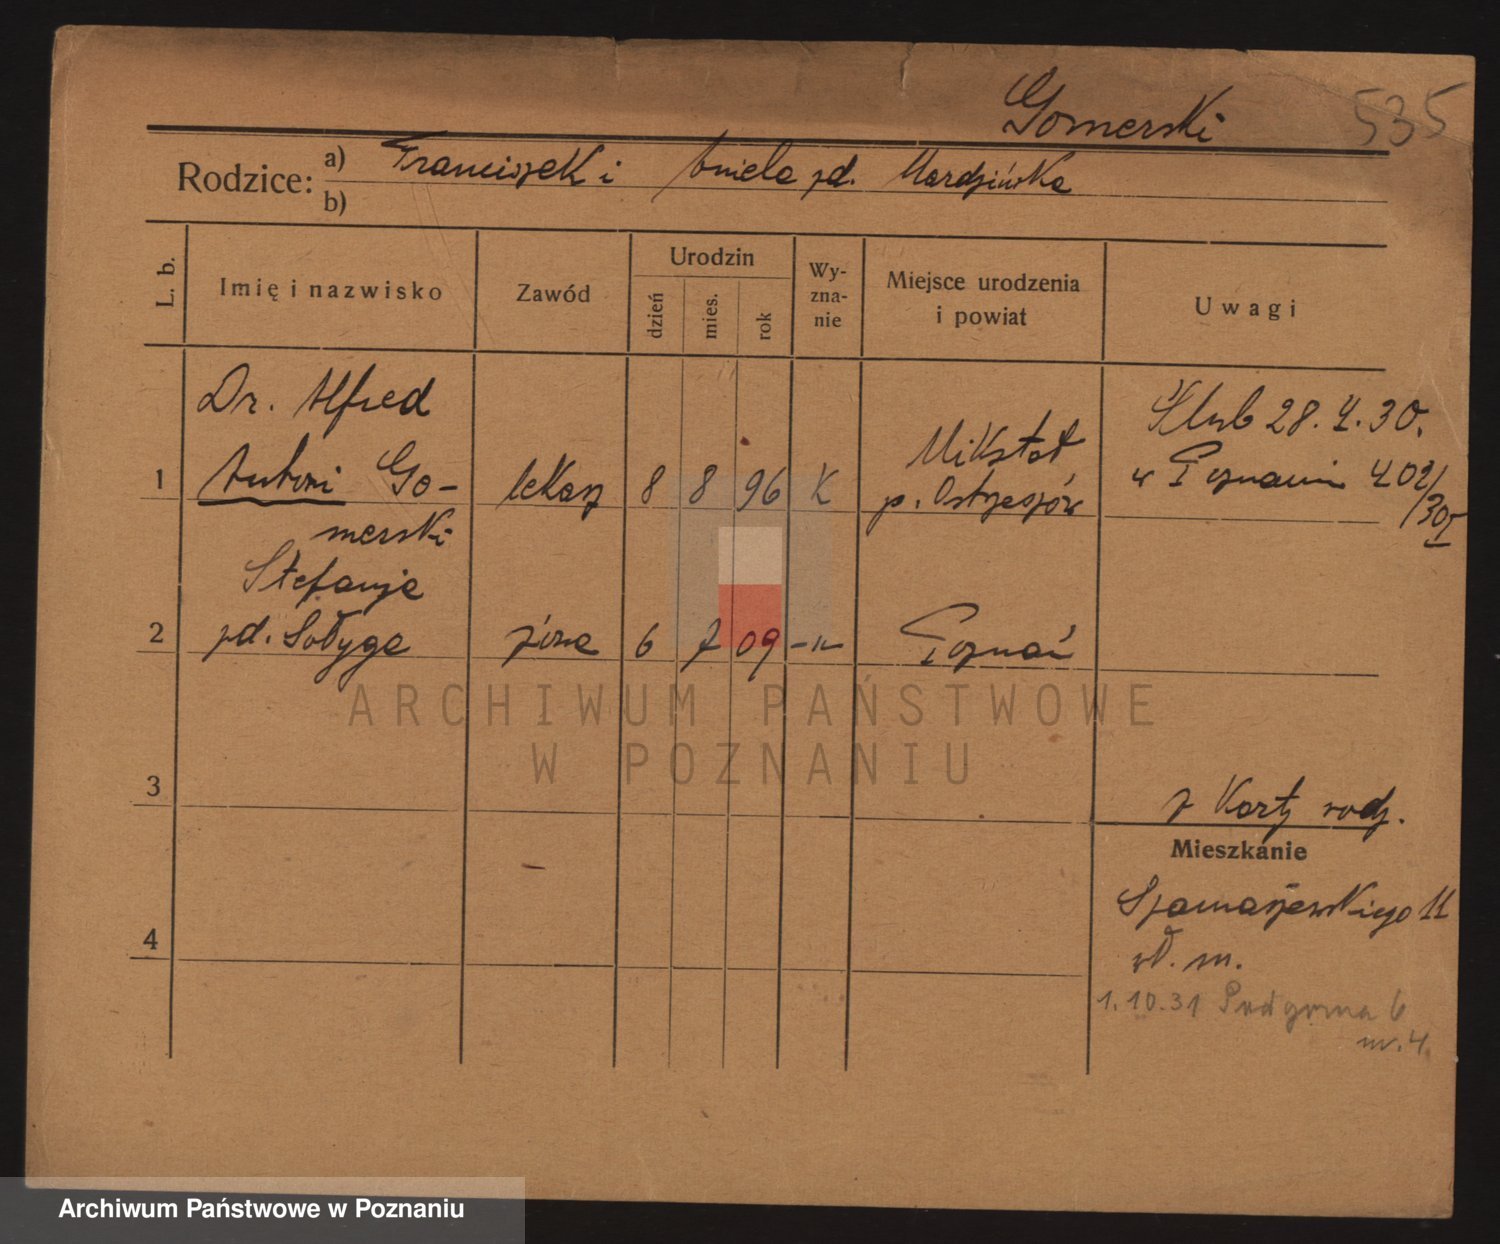 Gomerski 535
Rodzice: a) Franciszek i Aniela zd. Mardzińska
b)
L. b. Imię i nazwisko Zawód Urodzin dzień mies. rok Wy-zna-nie Miejsce urodzenia i powiat Uwagi
Dr. Alfred
1 Antoni Go- lekarz 8 8 96 K Mikstat p. Ostrzeszów Ślub 28. 4. 30. w Poznaniu 402/30
merski
Stefanja
2 zd. Sołyga żona 6 7 09 -"- Poznań
3
z Karty rodz.
Mieszkanie
4
Szamarzewskiego 11
wł. m.
1.10.31 Podgórna 6
m. 4.
ARCHIWUM PAŃSTWOWE
W POZNANIU
Archiwum Państwowe w Poznaniu